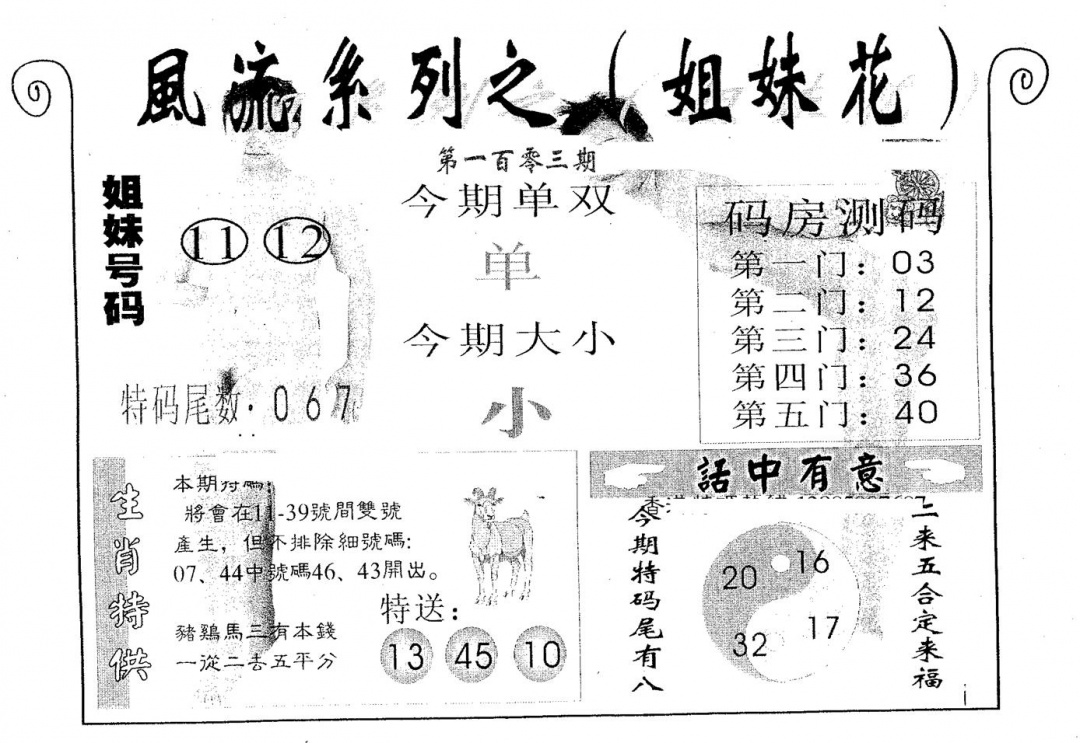 風流系列之（姐妹花）
第一百零三期
姐妹号码
11 12
特码尾数·067
今期单双
单
今期大小
小
码房测码
第一门：03
第二门：12
第三门：24
第四门：36
第五门：40
生肖特供
本期特碼:
將會在11-39號間雙號
產生，但不排除細號碼:
07、44中號碼46、43開出。
豬鷄馬三有本錢
一從二去五平分
特送：
13 45 10
話中有意
今期特码尾有八
20 16
32 17
二来五合定来福